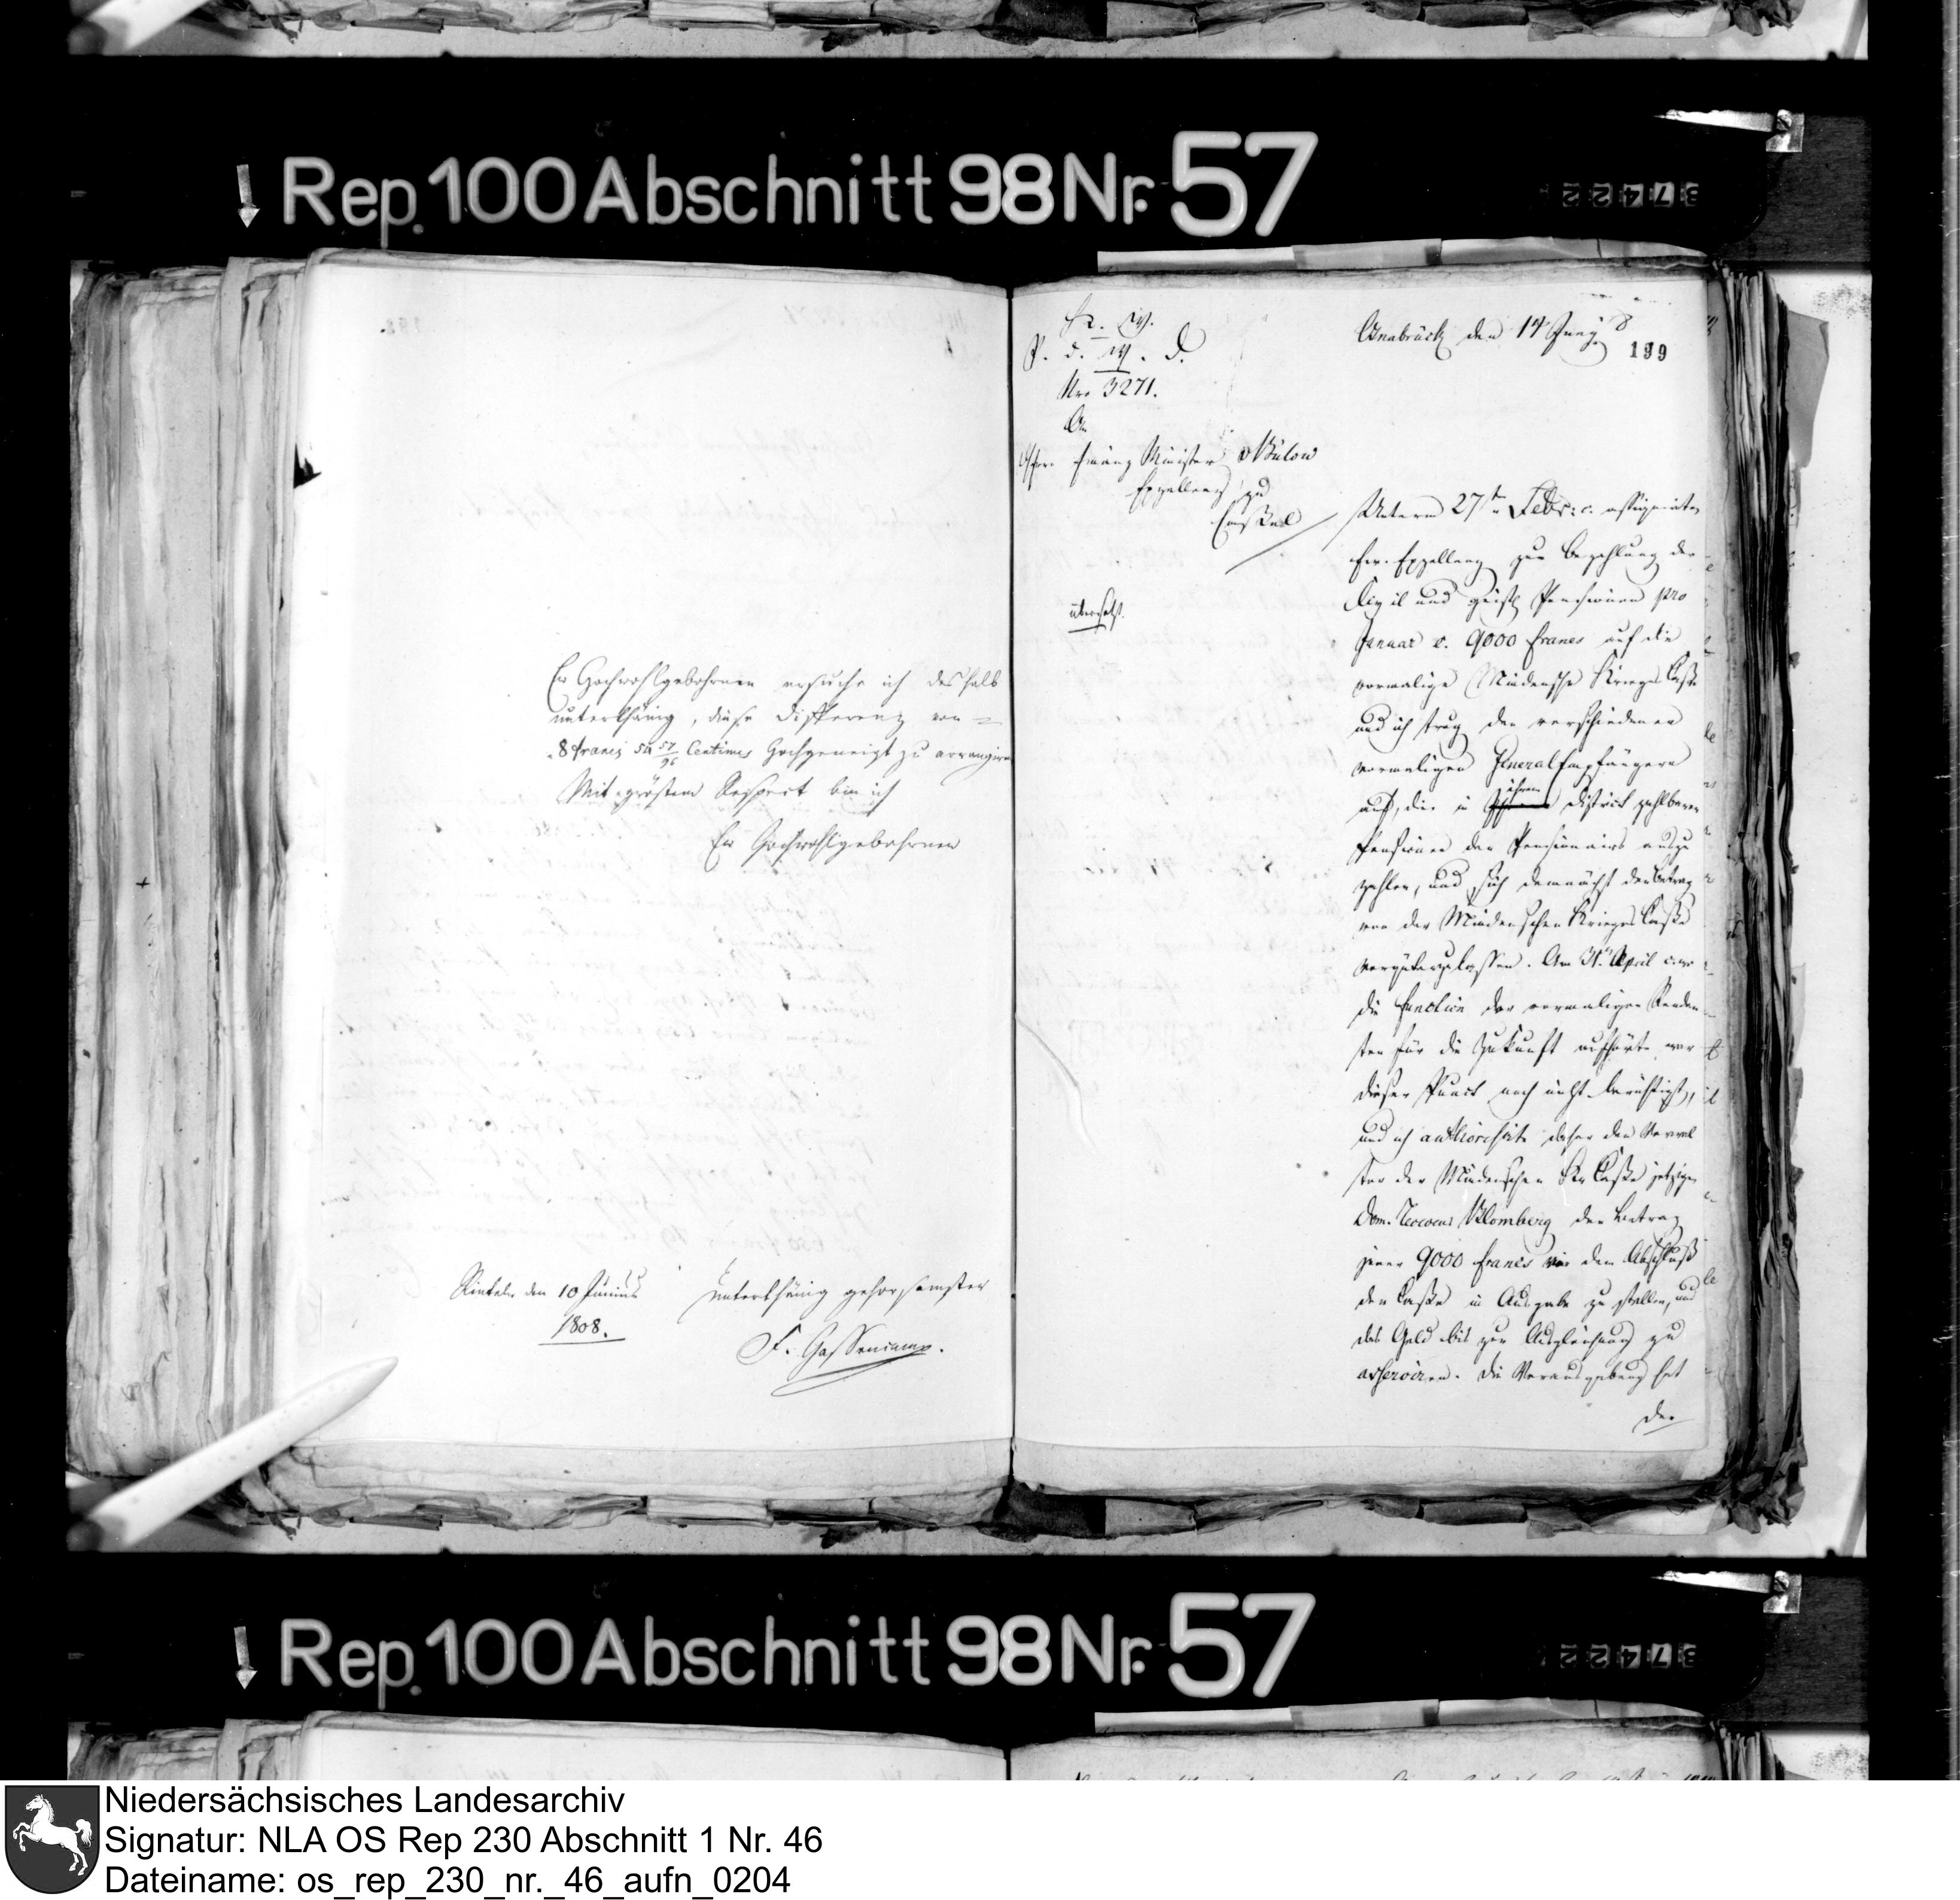 Rep. 100 Abschnitt 98 Nr. 57
37422
Ew Hochwohlgebohrnen ersuche ich deshalb
unterthänig, diese Differenz von =
8 francs 50 57/96 Centimes Hochgeneigt zu arrangiren
Mit größtem Respect bin ich
Ew Hochwohlgebohrnen
Rinteln den 10 Junius
1808.
unterthänig gehorsamster
F.
Osnabrück den 14 Juny 8
199
P. d. W. D.
Nro 3271.
An
Finanz Minister v Bülow
Exzellenz zu
Cassel
übersetzt.
Unterm 27t Febr: c. assignirten
Ew. Exzellenz zur Bezahlung der
Civil und geistl Pensionen pro
Januar c. 9000 francs auf die
vormalige Mindensche Krieges Casse
und ich trug den verschiedenen
vormaligen General Empfängern
auf, die in ihrem District zahlbaren
Pensionen den Pensionairs auszu
zahlen, und sich demnächst den Betrag
von der Mindenschen Krieges Casse
vergüten zu lassen. Am April c. wo
die Function der vormaligen Rendan
ten für die Zukunft aufhörte war
dieser Punct noch nicht berichtigt,
und ich authorisirte daher den Verwal
ter der Mindenschen Kr Casse jetzigen
Dom. Receveur Blomberg den Betrag
jener 9000 francs vor dem Abschluß
der Casse in Ausgabe zu stellen, und
das Geld bis zur Ausgleichung zu
asserviren. Die Verausgabung hat
der
Rep. 100 Abschnitt 98 Nr. 57
37422
Niedersächsisches Landesarchiv
Signatur: NLA OS Rep 230 Abschnitt 1 Nr. 46
Dateiname: os_rep_230_nr._46_aufn_0204